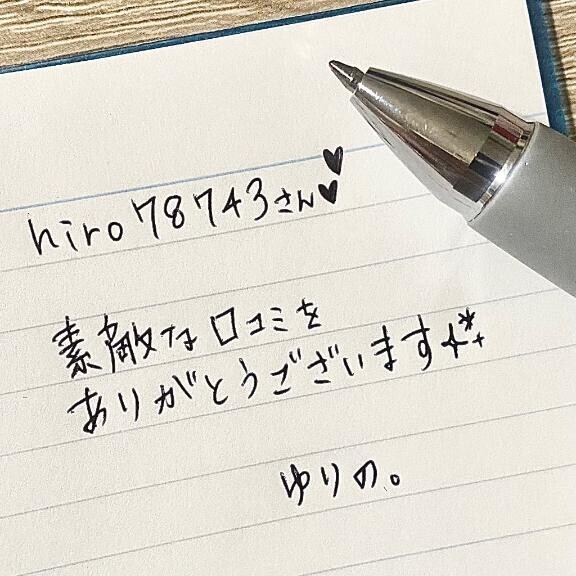 hiro78743さん♥♥
素敵な口コミを
ありがとうございます
ゆりの。